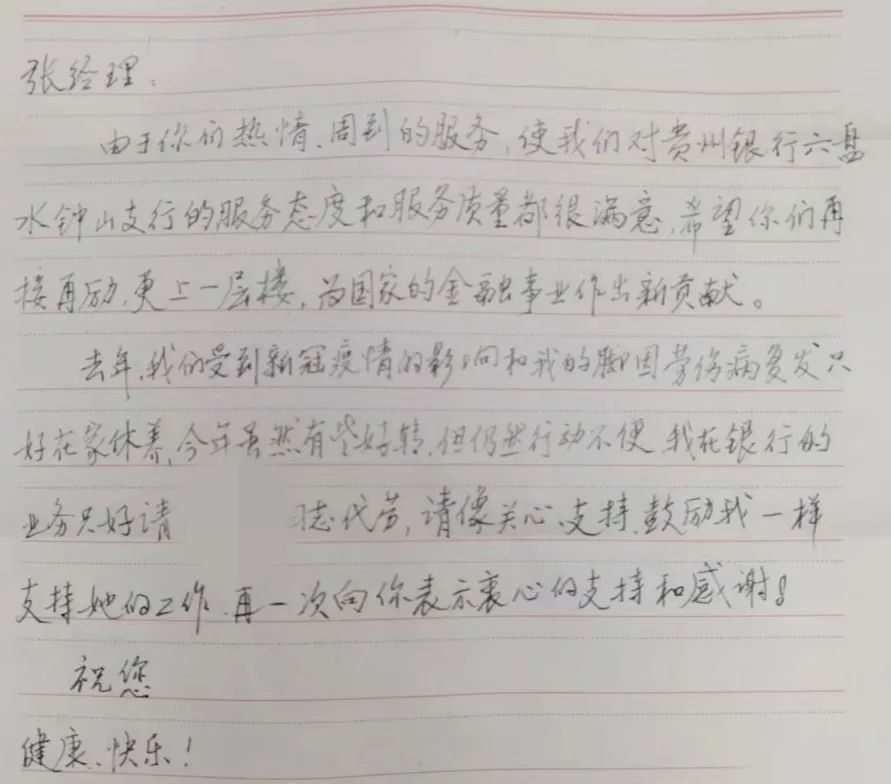 张经理：
由于你们热情、周到的服务，使我们对贵州银行六盘
水钟山支行的服务态度和服务质量都很满意，希望你们再
接再励，更上一层楼，为国家的金融事业作出新贡献。
去年，我们受到新冠疫情的影响和我的脚因劳伤病复发只
好在家休养，今年虽然有些好转，但仍然行动不便，我在银行的
业务只好请 志代劳，请像关心、支持、鼓励我一样
支持她的工作，再一次向你表示衷心的支持和感谢！
祝您
健康、快乐！